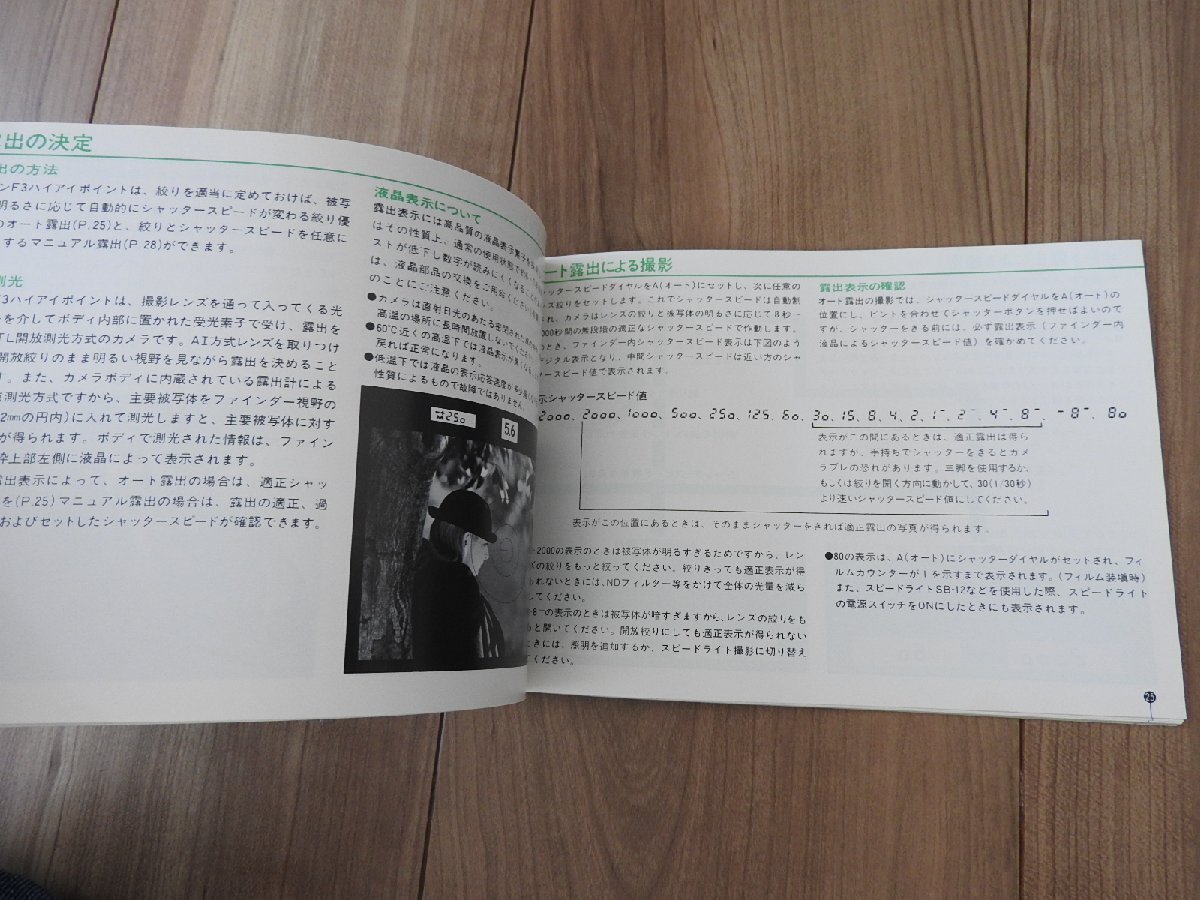 出の決定
出の方法
ンF3ハイアイポイントは、絞りを適当に定めておけば、被写
明るさに応じて自動的にシャッタースピードが変わる絞り優
のオート露出(P.25)と、絞りとシャッタースピードを任意に
するマニュアル露出(P.28)ができます。
測光
F3ハイアイポイントは、撮影レンズを通って入ってくる光
を介してボディ内部に置かれた受光素子で受け、露出を
TL開放測光方式のカメラです。AI方式レンズを取りつけ
開放絞りのまま明るい視野を見ながら露出を決めること
す。また、カメラボディに内蔵されている露出計による
測光方式ですから、主要被写体をファインダー視野の
2mmの円内)に入れて測光しますと、主要被写体に対す
が得られます。ボディで測光された情報は、ファイン
枠上部左側に液晶によって表示されます。
露出表示によって、オート露出の場合は、適正シャッ
を(P.25)マニュアル露出の場合は、露出の適正、過
およびセットしたシャッタースピードが確認できます。
液晶表示について
露出表示には高品質の液晶表示素子を
はその性質上、通常の使用状態で約
ストが低下し数字が読みにくくなる
は、液晶部品の交換をご用命ください
のことにご注意ください。
●カメラは直射日光のあたる密閉された
高温の場所に長時間放置しないでください。
●60℃近くの高温下では液晶表示が黒くなる
戻れば正常になります。
●低温下では液晶の表示応答速度が
性質によるもので故障ではありません。
250
5.6
ート露出による撮影
ャッタースピードダイヤルをA(オート)にセットし、次に任意の
ンズ絞りをセットします。これでシャッタースピードは自動制
され、カメラはレンズの絞りと被写体の明るさに応じて8秒~
000秒間の無段階の適正なシャッタースピードで作動します。
のとき、ファインダー内シャッタースピード表示は下図のよう
ジタル表示となり、中間シャッタースピードは近い方のシャ
タースピード値で表示されます。
露出表示の確認
オート露出の撮影では、シャッタースピードダイヤルをA(オート)の
位置にし、ピントを合わせてシャッターボタンを押せばよいので
すが、シャッターをきる前には、必ず露出表示(ファインダー内
液晶によるシャッタースピード値)を確かめてください。
示シャッタースピード値
2000、2000、1000、500、250、125、60、30、15、8、4、2、1⁻、2⁻、4⁻、8⁻、-8⁻、80
表示がこの間にあるときは、適正露出は得ら
れますが、手持ちでシャッターをきるとカメ
ラブレの恐れがあります。三脚を使用するか、
もしくは絞りを開く方向に動かして、30(1/30秒)
より速いシャッタースピード値にしてください。
表示がこの位置にあるときは、そのままシャッターをきれば適正露出の写真が得られます。
-2000の表示のときは被写体が明るすぎるためですから、レン
ズの絞りをもっと絞ってください。絞りきっても適正表示が得
られないときには、NDフィルター等をかけて全体の光量を減ら
してください。
-8⁻の表示のときは被写体が暗すぎますから、レンズの絞りをも
っと開いてください。開放絞りにしても適正表示が得られない
ときには、照明を追加するか、スピードライト撮影に切り替え
てください。
●80の表示は、A(オート)にシャッターダイヤルがセットされ、フィ
ルムカウンターが1を示すまで表示されます。(フィルム装填時)
また、スピードライトSB-12などを使用した際、スピードライト
の電源スイッチをONにしたときにも表示されます。
25